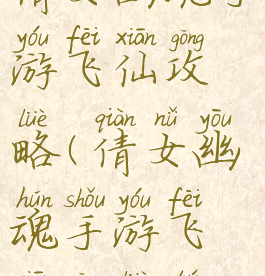 yóu fēi xiān gōng
游飞仙攻
lüè qiàn nǚ yōu
略(倩女幽
hún shǒu yóu fēi
魂手游飞